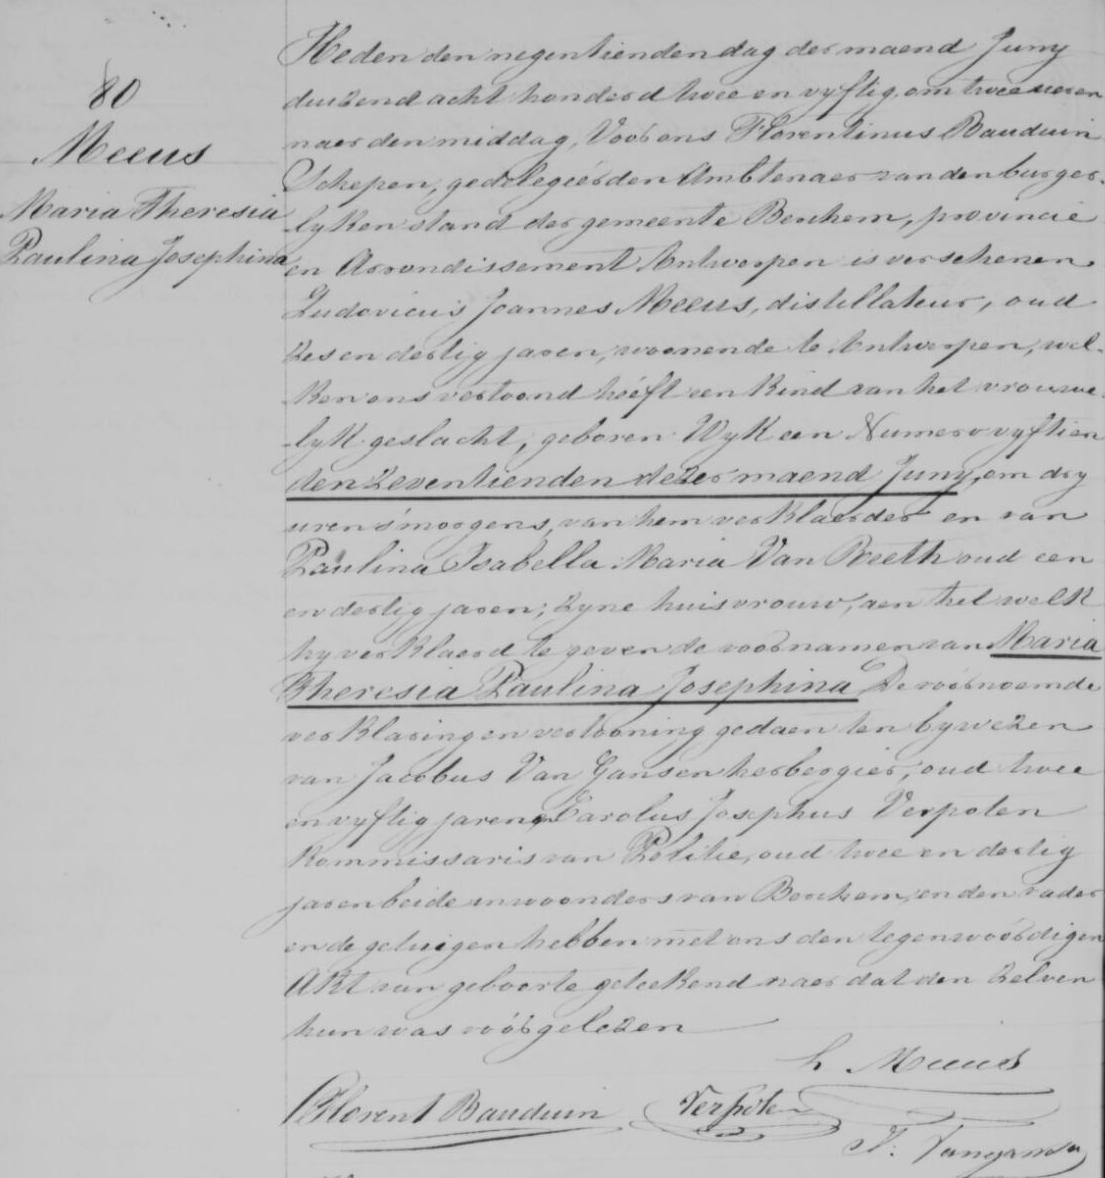 80
Meeus
Maria Theresia
Paulina Josephina
Heden den negentienden dag der maend Juny
duizend acht honderd twee en vyftig, om twee uren
naer den middag, Voor ons Florentinus Bauduin
Schepen, gedelegeérden Ambtenaer van den burger-
lyken stand der gemeente Berchem, provincie
en Arrondissement Antwerpen is verschenen
Ludovicus Joannes Meeus, distillateur, oud
zes en dertig jaren, woonende te Antwerpen, wel-
ken ons vertoond heéft een Kind van het vrouwe-
lyk geslacht, geboren Wyk een Numero vyftien
den zeventienden dezer maend Juny, om dry
uren s'morgens, van hem verklaerder en van
Paulina Isabella Maria Van Beeth oud een
en dertig jaren, zyne huisvrouw, aen het welk
hy verklaerd te geven de voornamen van Maria
Theresia Paulina Josephina De voórnoemde
verklaring en vertooning gedaen ten bywezen
van Jacobus Van Gansen herbergier, oud twee
en vyftig jaren, Carolus Josephus Verpoten
Kommissaris van Politie, oud twee en dertig
jaren beide inwoonders van Berchem, en den vader
en de getuigen hebben met ons den tegenwoórdigen
Akt van geboorte geteekend naer dat den zelven
hun was voórgelezen
L Meeus
Florent Bauduin Verpoten
J. Vangansen